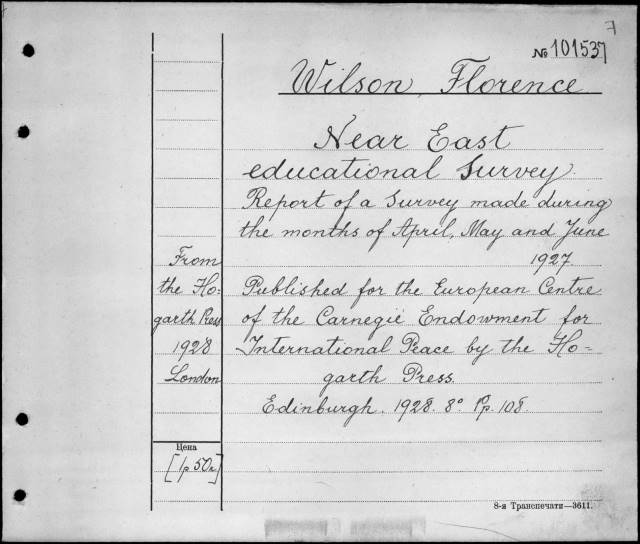 F
№ 101537
Wilson, Florence
Near East
educational Survey.
Report of a Survey made during
the months of April, May and June
1927.
Published for the European Centre
of the Carnegie Endowment for
International Peace by the Ho=
garth Press.
Edinburgh. 1928. 8° Pp. 108.
From
the Ho-
garth Press
1928
London
Цена
[1р 50к]
8-я Транспечати—3611.